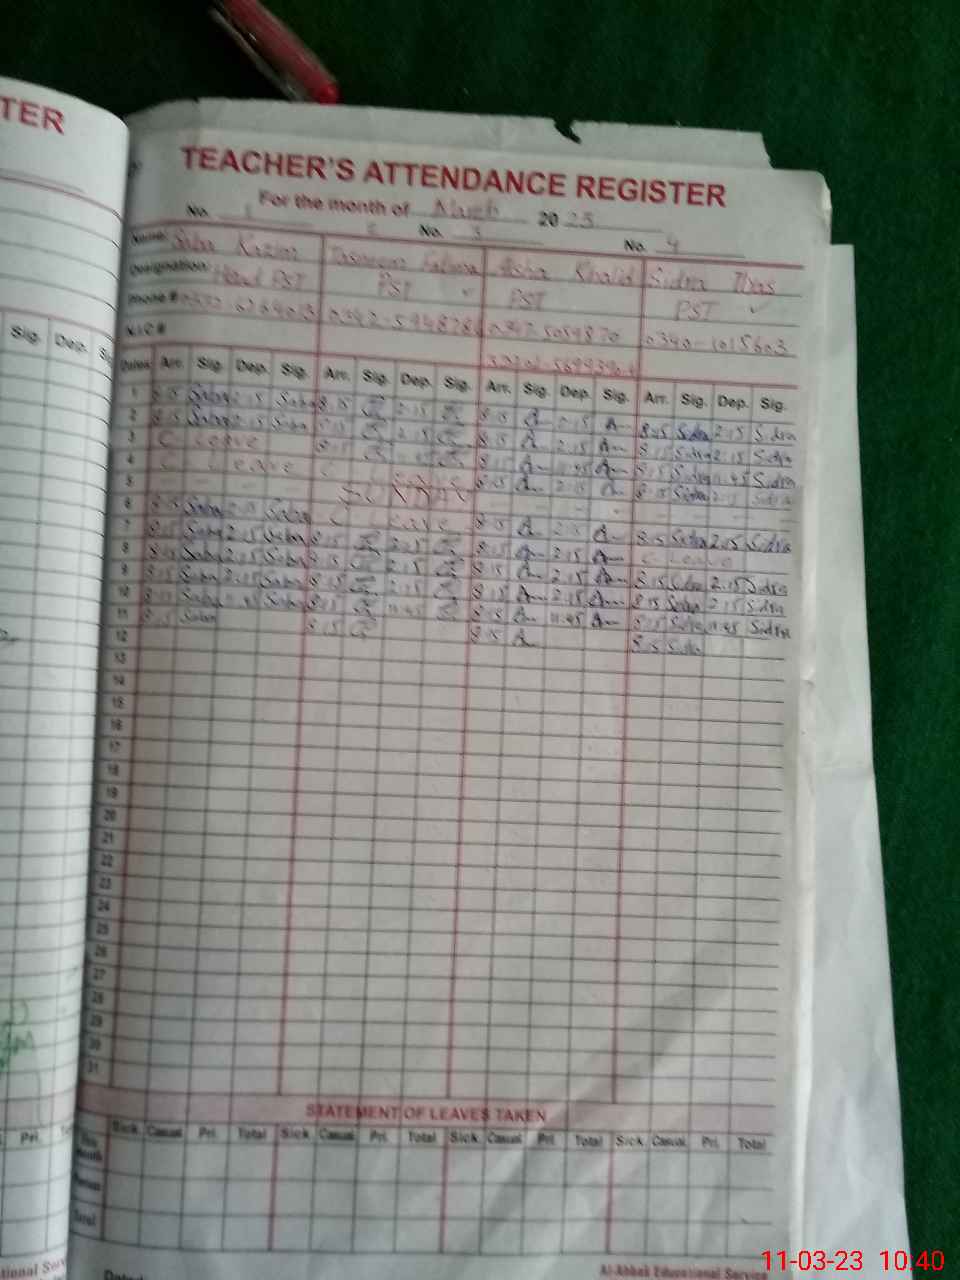 TER
TEACHER'S ATTENDANCE REGISTER
For the month of March 2023
No. 1 2 No. 3 No. 4
Name: Saba Kazim Tasneem Fatima Aisha Khalid Sidra Ilyas
Designation: Head PST PST PST PST
Phone # 0342-5948786 0347-5059870 0340-1015603
N.I.C #
Sig. Dep. Dates Arr. Sig. Dep. Sig. Arr. Sig. Dep. Sig. Arr. Sig. Dep. Sig. Arr. Sig. Dep. Sig.
1 8:15 Saba 2:15 Saba 8:15 2:15 8:15 A 2:15 A 8:15 Sidra 2:15 Sidra
2 8:15 Saba 2:15 Saba 8:15 2:15 8:15 A 2:15 A 8:15 Sidra 2:15 Sidra
3 C Leave 8:15 11:45 8:15 A 11:45 A 8:15 Sidra 11:45 Sidra
4 C Leave C Leave 8:15 A 2:15 A 8:15 Sidra 2:15 Sidra
5 SUNDAY
6 8:15 Saba 2:15 Saba C Leave 8:15 A 2:15 A 8:15 Sidra 2:15 Sidra
7 8:15 Saba 2:15 Saba 8:15 2:15 8:15 A 2:15 A C Leave
8 8:15 Saba 2:15 Saba 8:15 2:15 8:15 A 2:15 A 8:15 Sidra 2:15 Sidra
9 8:15 Saba 2:15 Saba 8:15 2:15 8:15 A 2:15 A 8:15 Sidra 2:15 Sidra
10 8:15 Saba 11:45 Saba 8:15 11:45 8:15 A 11:45 A 8:15 Sidra 11:45 Sidra
11 8:15 Saba 8:15 8:15 A 8:15 Sidra
12
13
14
15
16
17
18
19
20
21
22
23
24
25
26
27
28
29
30
31
STATEMENT OF LEAVES TAKEN
Pri. Sick Casual Pri. Total Sick Casual Pri. Total Sick Casual Pri. Total Sick Casual Pri. Total
This month
Total
Al-Abbak Educational Service
11-03-23 10.40